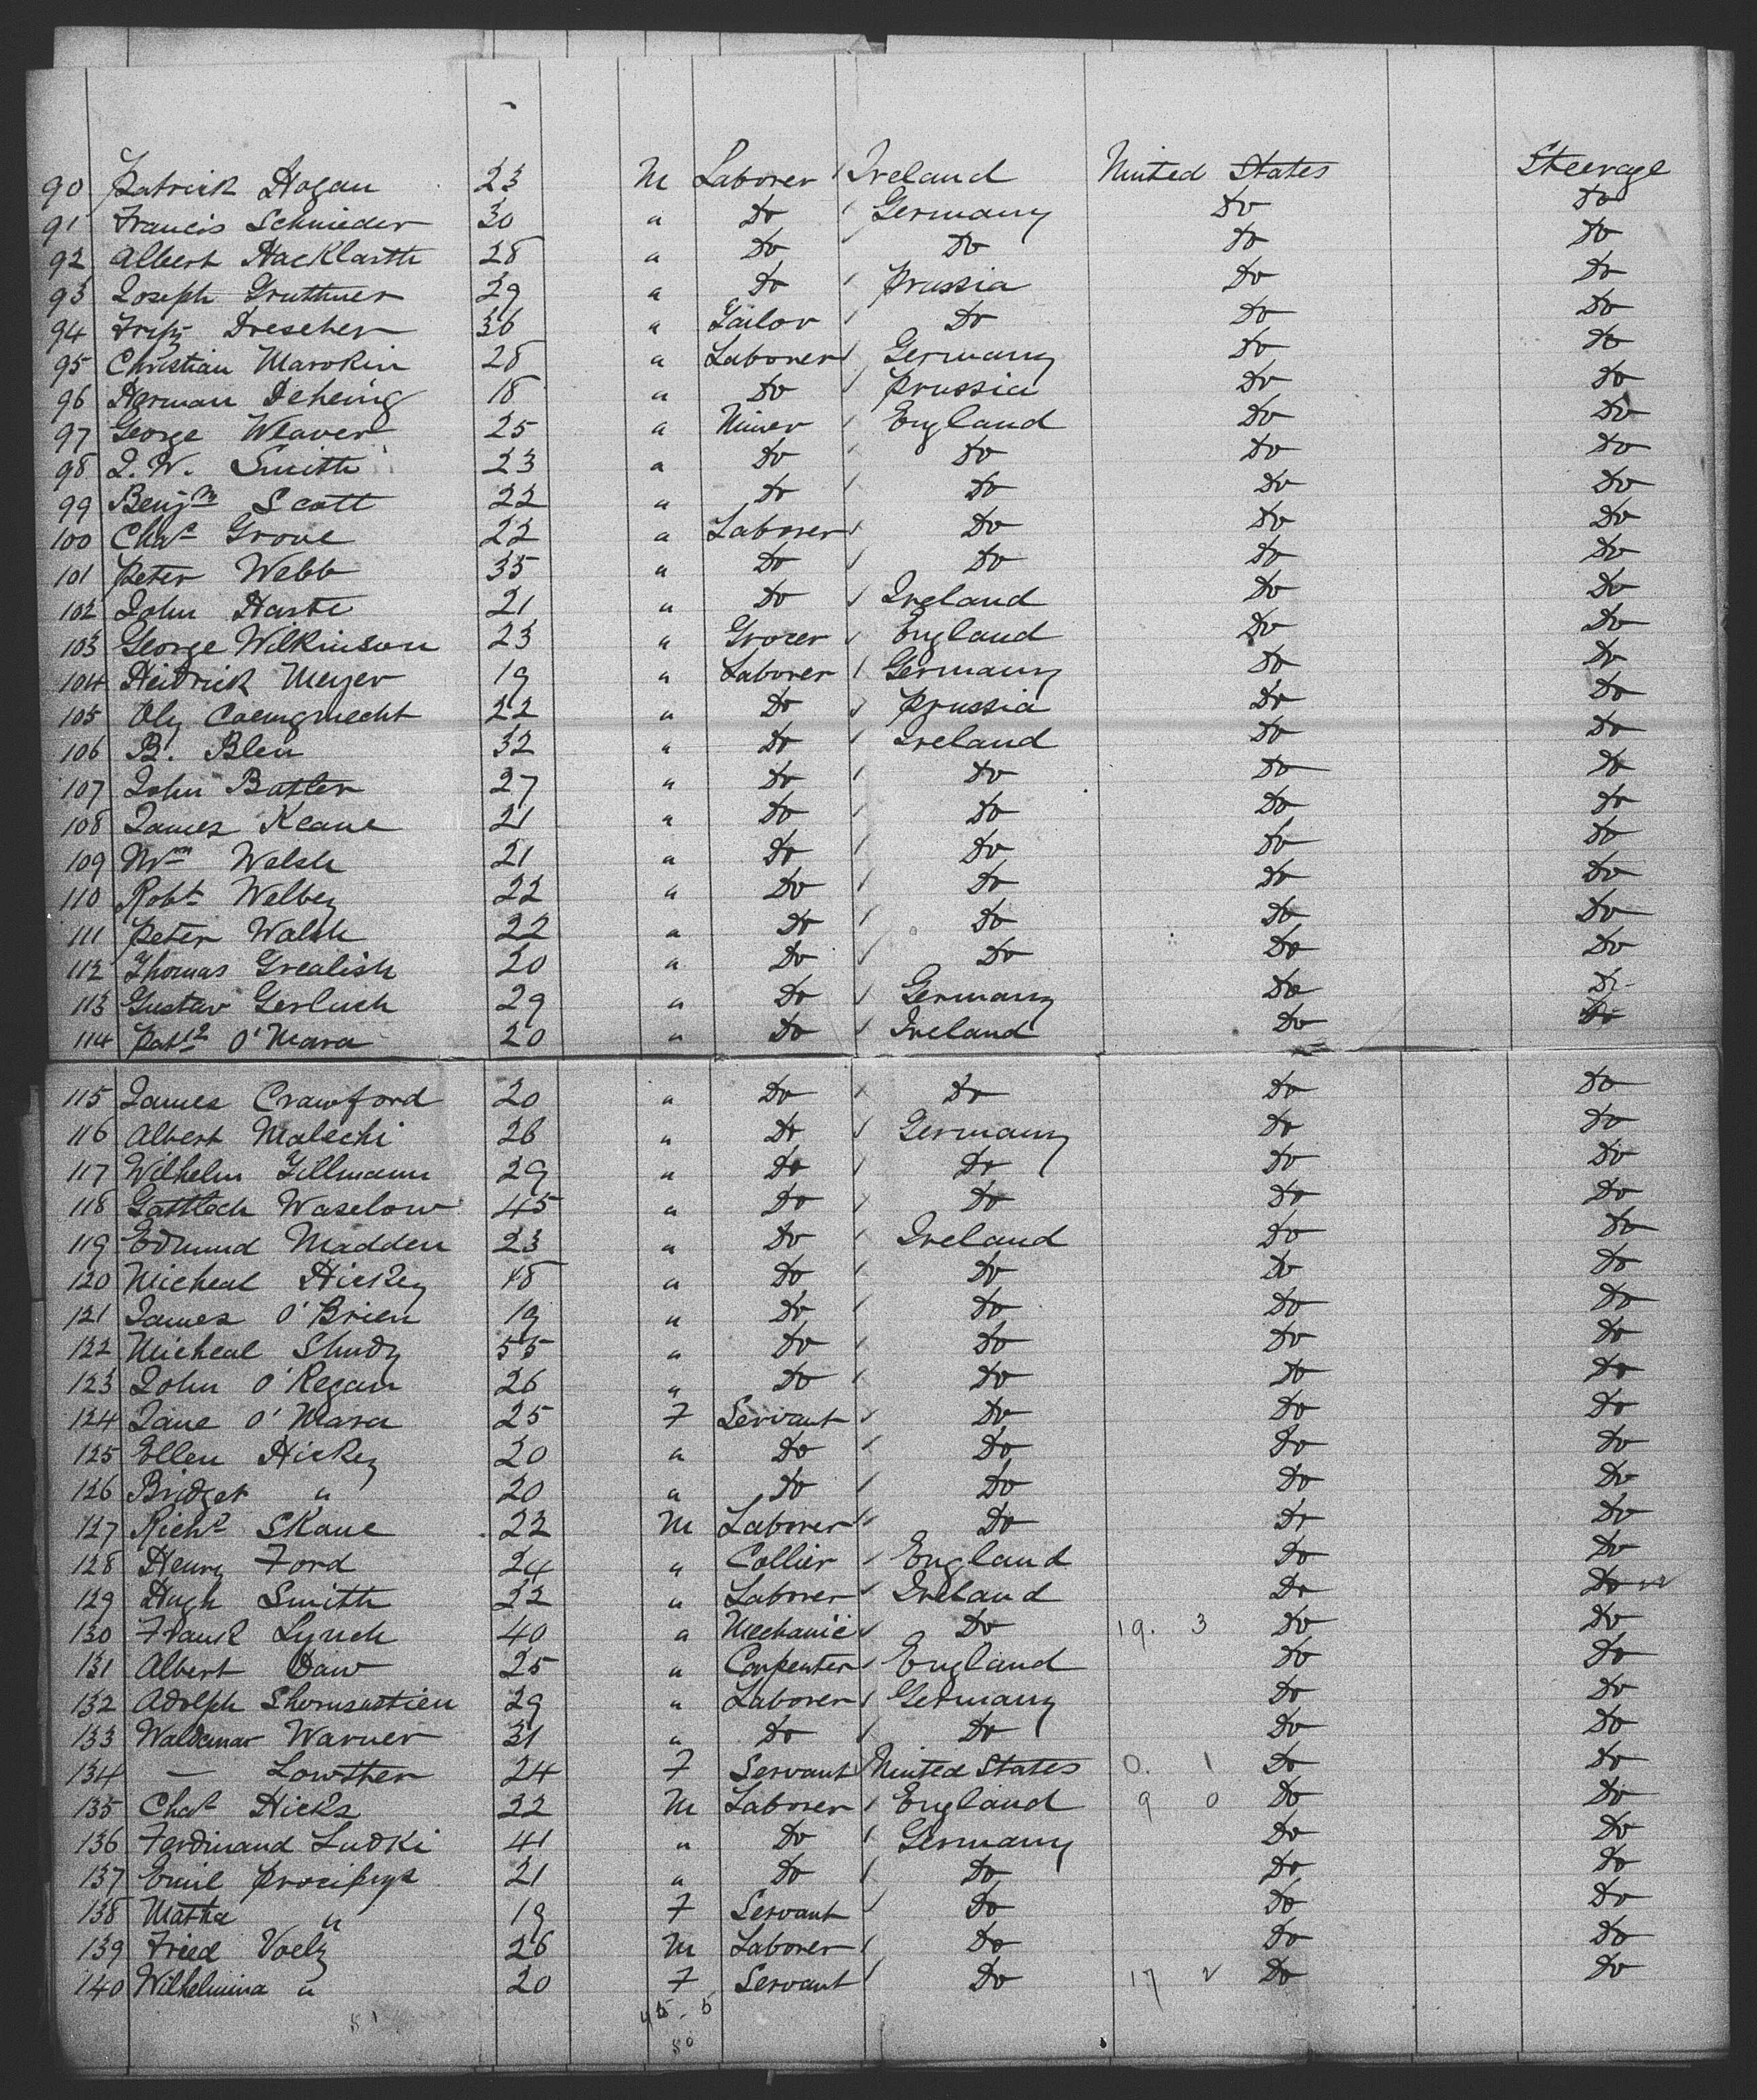 90 Patrick Hogan 23 M Laborer Ireland United States Steerage
91 Francis Schnieder 30 " Do Germany Do Do
92 Albert Hacklarth 28 " Do Do Do Do
93 Joseph Gruthner 29 " Do Prussia Do Do
94 Fritz Drescher 36 " Tailor Do Do Do
95 Christian Marokin 28 " Laborer Germany Do Do
96 Herman Deheing 18 " Do Prussia Do Do
97 George Weaver 25 " Miner England Do Do
98 J. W. Smith 23 " Do Do Do Do
99 Benjm Scott 22 " Do Do Do Do
100 Chas Grove 22 " Laborer Do Do Do
101 Peter Webb 35 " Do Do Do Do
102 John Harte 21 " Do Ireland Do Do
103 George Wilkinson 23 " Grocer England Do Do
104 Heidrick Meyer 19 " Laborer Germany Do Do
105 Oly 22 " Do Prussia Do Do
106 B. Blen 32 " Do Ireland Do Do
107 John Batler 27 " Do Do Do Do
108 James Keane 21 " Do Do Do Do
109 Wm Welsh 21 " Do Do Do Do
110 Robt Welbey 22 " Do Do Do Do
111 Peter Walsh 22 " Do Do Do Do
112 Thomas Grealish 20 " Do Do Do Do
113 Gustav Gerluch 29 " Do Germany Do Do
114 Patk O'Mara 20 " Do Ireland Do Do
115 James Crawford 20 " Do Do Do Do
116 Albert Malechi 26 " Do Germany Do Do
117 Wilhelm Gillmann 29 " Do Do Do Do
118 Gattloch Waselow 45 " Do Do Do Do
119 Edmund Madden 23 " Do Ireland Do Do
120 Micheal Hickey 18 " Do Do Do Do
121 James O'Brien 19 " Do Do Do Do
122 Micheal Shudy 55 " Do Do Do Do
123 John O'Regan 26 " Do Do Do Do
124 Jane O'Mara 25 F Servant Do Do Do
125 Ellen Hickey 20 " Do Do Do Do
126 Bridget " 20 " Do Do Do Do
127 Richd Skane 22 M Laborer Do Do Do
128 Henry Ford 24 " Collier England Do Do
129 Hugh Smith 22 " Laborer Ireland Do Do
130 Frank Lynch 40 " Mechanic Do 19. 3 Do Do
131 Albert Daw 25 " Carpenter England Do Do
132 Adolph 29 " Laborer Germany Do Do
133 Waldemar Warner 31 " Do Do Do Do
134 — Lowther 24 F Servant United States 0. 1 Do Do
135 Chas Hicks 22 M Laborer England 9 0 Do Do
136 Ferdinand Ludki 41 " Do Germany Do Do
137 Emil 21 " Do Do Do Do
138 Matha " 19 F Servant Do Do Do
139 Fried Voelz 26 M Laborer Do Do Do
140 Wilhelmina " 20 F Servant Do 17 2 Do Do